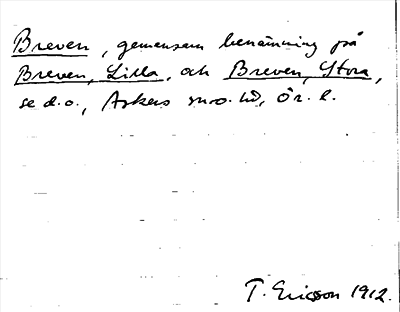 Breven, gemensam benämning på
Breven, Lilla, och Breven, Stora,
se d.o., Askers sn o. hd, Ör. l.
T. Ericsson 1912.